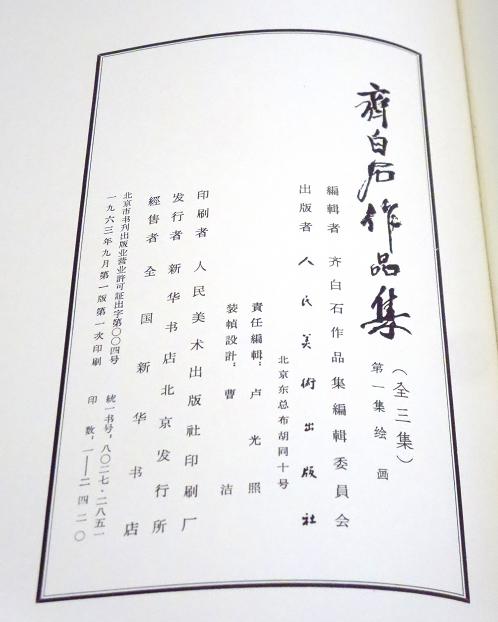 齊白石作品集
（全三集）
第一集绘画
編輯者 齐白石作品集編輯委員会
出版者 人民美術出版社
北京东总布胡同十号
責任編輯：卢光照
装幀設計：曹洁
印刷者 人民美术出版社印刷厂
发行者 新华书店北京发行所
經售者 全国新华书店
北京市书刊出版业营业許可証出字第〇〇四号
一九六三年九月第一版第一次印刷
統一书号：八〇二七·二八五一
印数：一——二四二〇